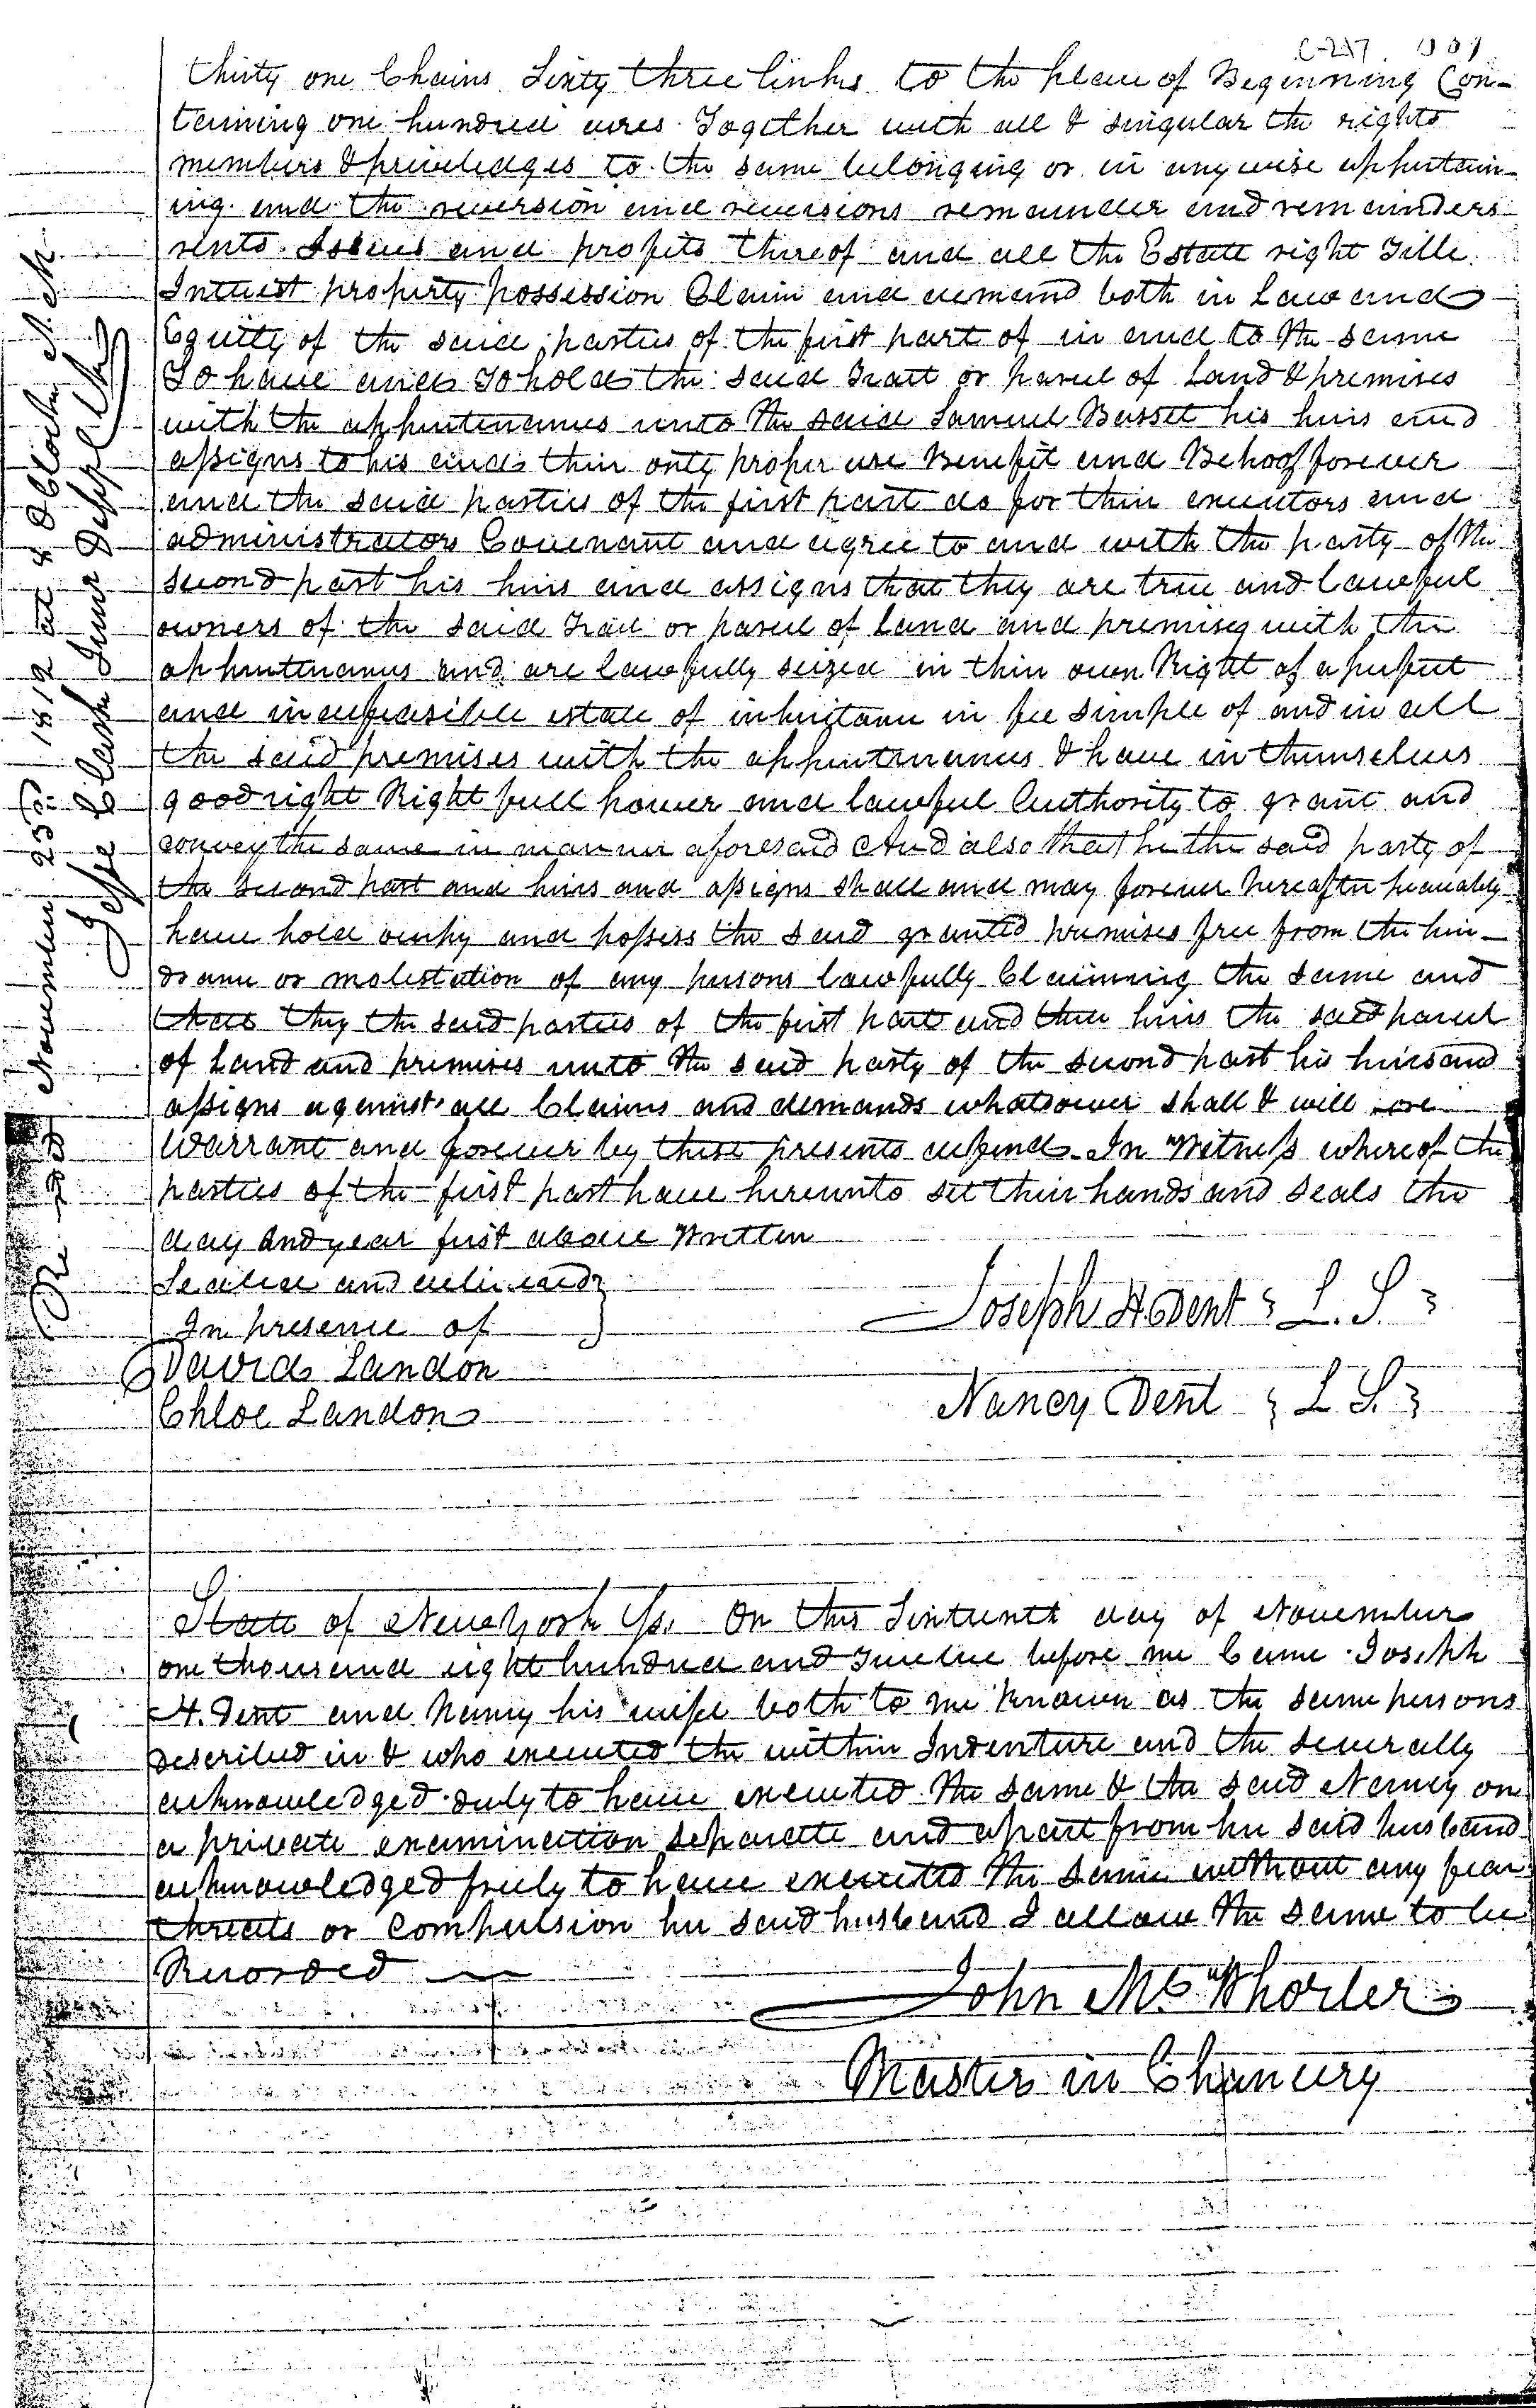 C-217
thirty one Chains Sixty three links to the place of Beginning Con-
taining one hundred acres Together with all & singular the rights
members & priviledges to the same belonging or in any wise appurtain-
ing and the reversion and reversions remainder and remainders
rents Issues and profits thereof and all the Estate right Title
Interest property possession Claim and demand both in Law and
Equity of the said parties of the first part of in and to the same
To have and To hold the said Tract or parcel of Land & premises
with the appurtenances unto the said Samuel Basset his heirs and
assigns to his and their only proper use Benefit and Behoof forever
and the said parties of the first part do for their executors and
administrators Covenant and agree to and with the party of the
second part his heirs and assigns that they are true and lawful
owners of the said Tract or parcel of land and premises with the
appurtenances and are lawfully seized in their own Right of a perfect
and indefeasible estate of inheritance in fee simple of and in all
the said premises with the appurtenances & have in themselves
good right Right full power and lawful Authority to grant and
convey the same in manner aforesaid And also that he the said party of
the second part and heirs and assigns shall and may forever hereafter peaceably
have hold occupy and possess the said granted premises free from the hin-
drance or molestation of any persons lawfully Claiming the same and
that they the said parties of the first part and their heirs the said parcel
of Land and premises unto the said party of the second part his heirs and
assigns against all Claims and demands whatsoever shall & will
Warrant and forever by these presents defend In Witness whereof the
parties of the first part have hereunto set their hands and seals the
day and year first above Written
Sealed and delivered
In presence of
David Landon
Chloe Landon
Joseph H. Dent L. S.
Nancy Dent L. S.
State of New York Ss. On this Sixteenth day of November
one thousand eight hundred and Twelve before me Came Joseph
H. Dent and Nancy his wife both to me known as the same persons
described in & who executed the within Indenture and the severally
acknowledged duly to have executed the same & the said Nancy on
a private examination separate and apart from her said husband
acknowledged freely to have executed the same without any fear
threats or Compulsion her said husband I allow the same to be
Recorded
John McWhorter
Master in Chancery
November 25th 1812 at 4 O Clock
Clerk